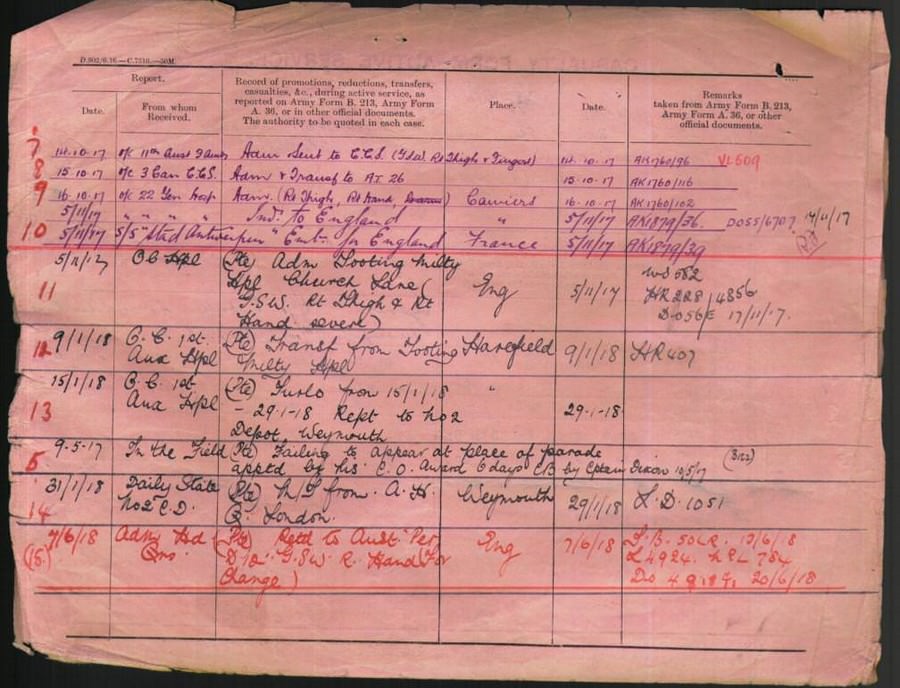 D.902/6.16.—C.7310.—50M.
Report.
Date.
From whom
Received.
Record of promotions, reductions, transfers,
casualties, &c., during active service, as
reported on Army Form B. 213, Army Form
A. 36, or in other official documents.
The authority to be quoted in each case.
Place.
Date.
Remarks
taken from Army Form B. 213,
Army Form A. 36, or other
official documents.
7 14.10.17 o/c 11th Aust F Amb Adm Sent to C.C.S. (Rt Thigh & Fingers) 14.10.17 AK1760/96 VL609
8 15.10.17 o/c 3 Can C.C.S. Adm & Transf to A.T. 26 15.10.17 AK1760/116
9 16.10.17 o/c 22 Gen Hosp Adm. (Rt Thigh, Rt Hand, Camiers 16.10.17 AK1760/102
5/11/17 " " " " Inv. to England " 5/11/17 AK1879/36. DO55/6707 14/11/17
10 5/11/17 S/S "Stad Antwerpen" Emb. for England France 5/11/17 AK1879/39
5/11/17 OC Hpl (Pte) Adm Tooting Milty
11 Hpl Church Lane ( Eng 5/11/17
G.S.W. Rt Thigh & Rt HR228/4856
Hand severe) 17/11/17.
12 9/1/18 O.C. 1st (Pte) Transf from Tooting Harefield 9/1/18 HR407
Aux Hpl Milty Hpl
15/1/18 O.C. 1st (Pte) Furlo from 15/1/18 "
13 Aux Hpl - 29-1-18 Rept to No 2 29-1-18
Depot, Weymouth
5 9-5-17 In the Field (Pte) Failing to appear at place of parade
apptd by his C.O. Award 6 days CB by Captain Dixon 10/5/17
31/1/18 Daily State (Pte) M/I from A.H. Weymouth 29/1/18 L.D. 1051
14 No 2 C.D. Q. London.
(15) 7/6/18 Adm Hd (Pte) Retd to Aust Per Eng 7/6/18 13/6/18
Qrs. D/o G.S.W. R. Hand (For L4924.
Change) 20/6/18